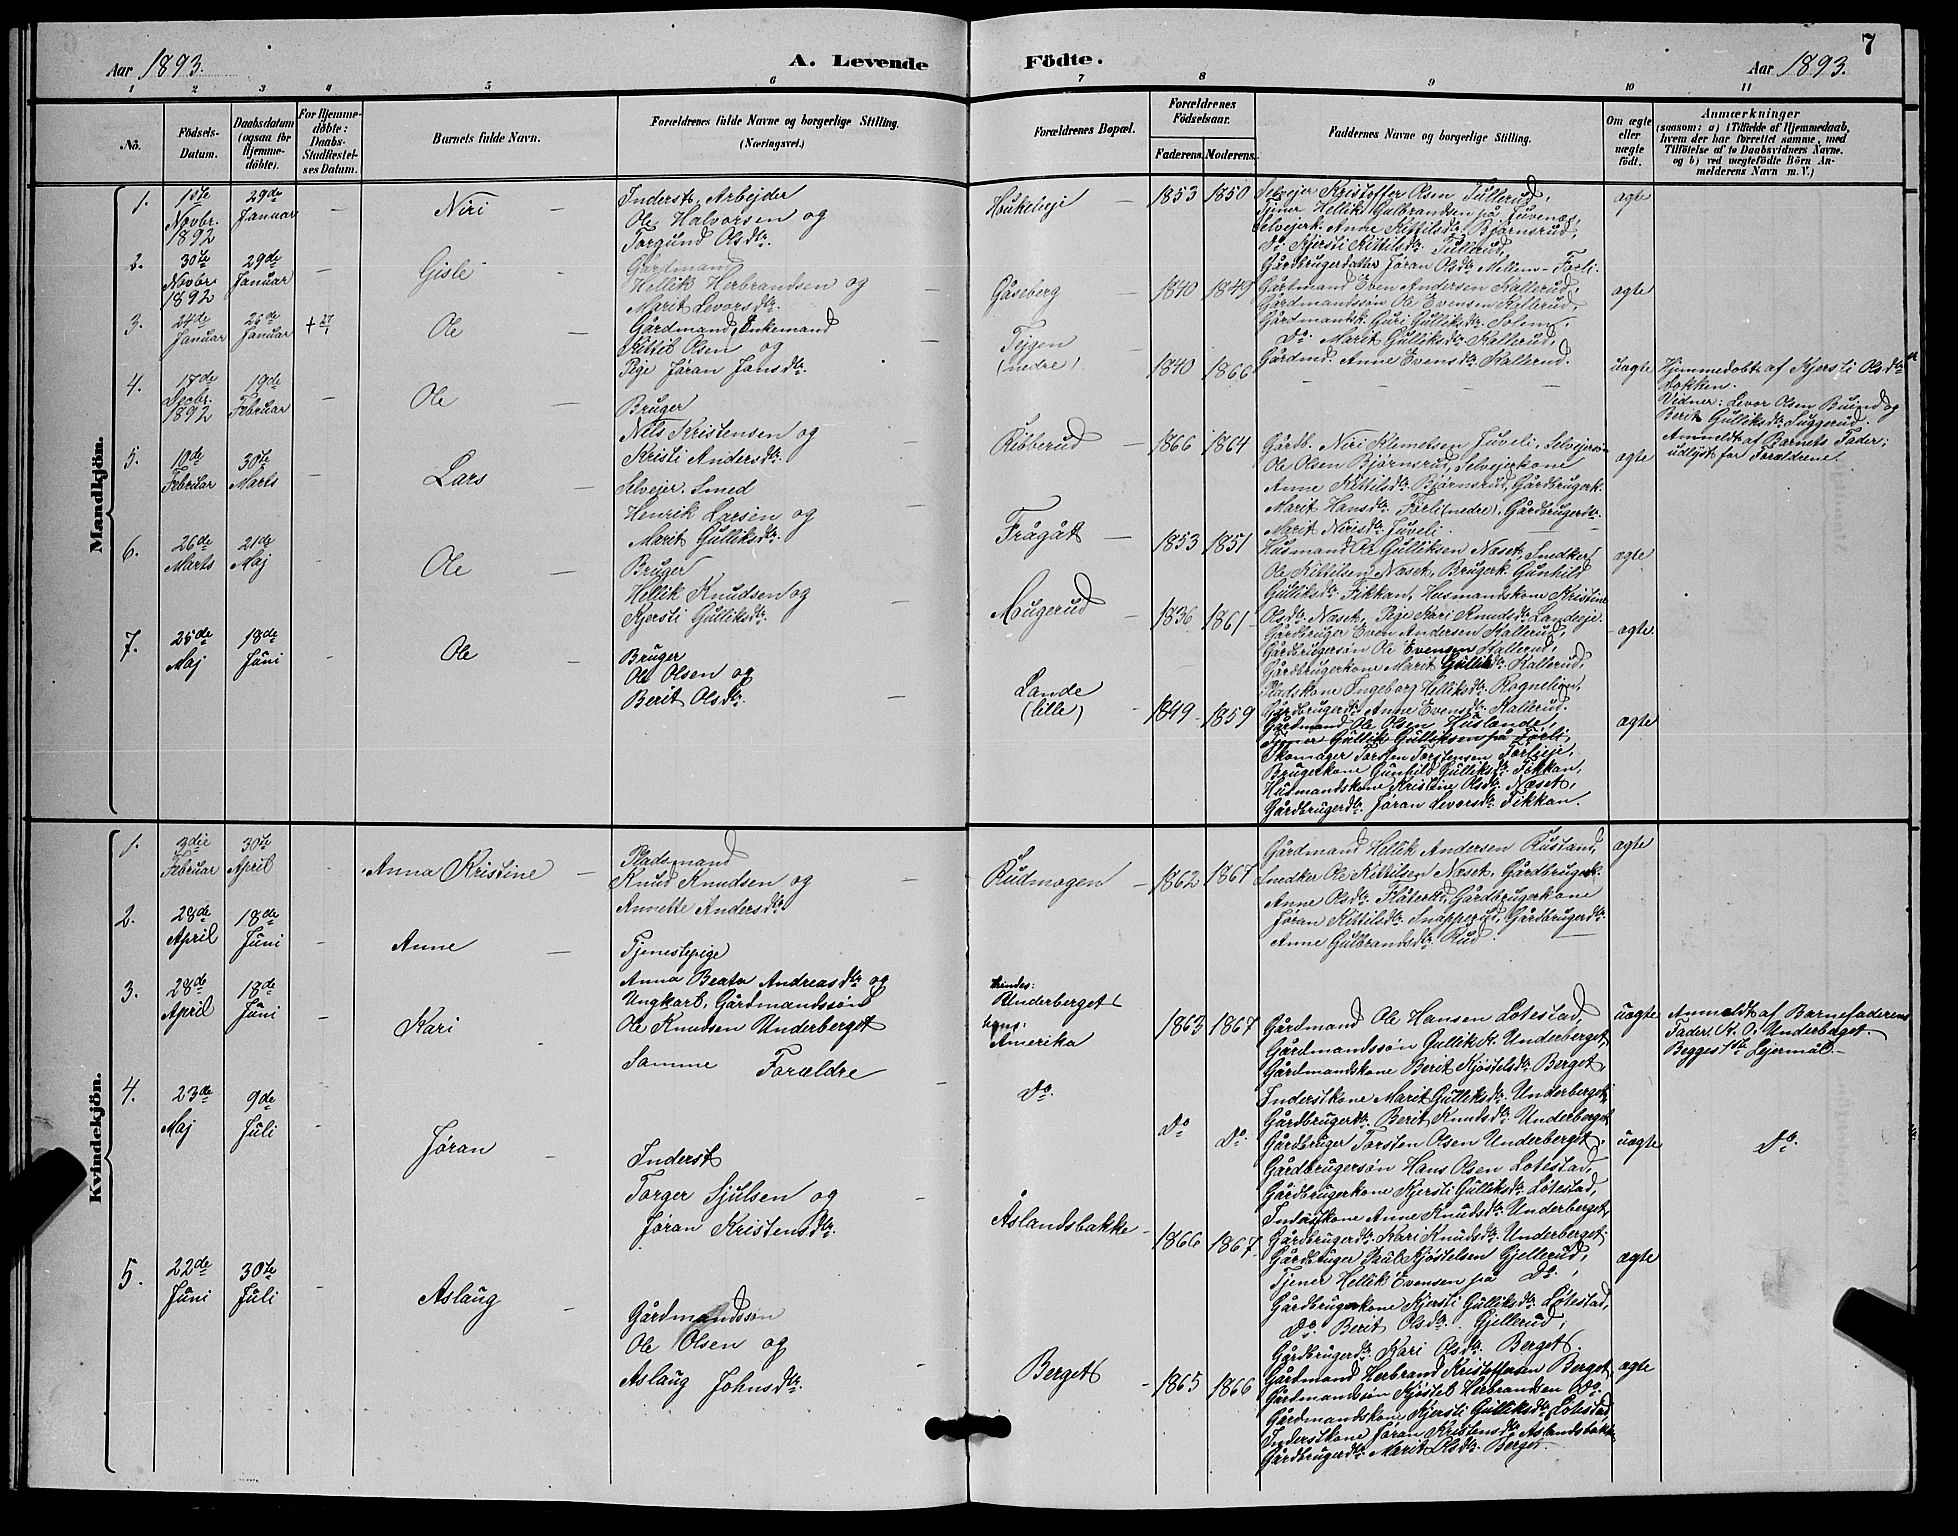 Aar 1893. A. Levende Födte. Aar 1893. 7
1 2 3 4 5 6 7 8 9 10 11
No.
Födsels-Datum.
Daabsdatum (ogsaa for Hjemme-döbte).
For Hjemme-döbte: Daabs-Stadfæstel-ses Datum.
Barnets fulde Navn.
Forældrenes fulde Navne og borgerlige Stilling.
(Næringsvei.)
Forældrenes Bopæl.
Forældrenes Födselsaar.
Faderens. Moderens.
Faddernes Navne og borgerlige Stilling.
Om ægte eller uægte födt.
Anmærkninger
(saasom: a) i Tilfælde af Hjemmedaab,
hvem der har forrettet samme, med
Tilföielse af to Daabsvidners Navne.
og b) ved uægtefödte Börn An-
melderens Navn m. V.)
Mandkjön.
1. 15te Novbr. 1892 29de Januar - Niri
Inderst, Arbejder
Ole Halvorsen og
Torgund Olsdtr.
1853 1850
Selvejer Kristoffer Olsen Tullerud,
Tjener Hellik Gulbrandsen på Juvenæs,
Selvejerk. Anne Kittilsdtr. Bjørnsrud,
Do. Kjersti Kittilsdtr. Tullerud,
Gårdbrugerdatter Jøran Olsdtr. Mellem-Førli.
ægte
2. 30te Novbr. 1892 29de Januar - Gisle
Gårdmand
Hellik Herbrandsen og
Marit Levorsdtr.
Gåseberg 1840 1849
Gårdmand Even Andersen Kallerud,
Gårdmandssøn Ole Evensen Kallerud,
Gårdmandsk. Guri Gulliksdtr. Solem,
Do. Marit Gulliksdtr. Kallerud,
Gårdmd. Anne Evensdtr. Kallerud.
ægte
3. 24de Januar 26de Januar + 27/1 Ole
Gårdmand, Enkemand
Kittil Olsen og
Pige Jøran Jonsdtr.
Tejgen
(nedre) 1840 1866 - - -
uægte
Hjemmedøbt af Kjersti Olsdtr.
Vidner: Levor Olsen Buind og
Berit Gulliksdtr. Juggerud.
Anmeldt af Barnets Fader;
udlyst for Forældrene.
4. 17de Decbr. 1892 19de Februar - Ole
Bruger
Nils Kristensen og
Kristi Andersdtr.
Ribberud 1866 1864
Gårdb. Niri Klemetsen Juveli, Selvejersøn
Ole Olsen Bjørnsrud, Selvejerkone
Anne Kittilsdtr. Bjørnsrud, Gårdbrugerk.
Marit Hansdtr. Førli (nedre), Gårdbrugerdtr.
Marit Nirisdtr. Juveli.
ægte
5. 10de Februar 30te Marts - Lars
Selvejer. Smed
Henrik Larsen og
Marit Gulliksdtr.
Frågåt 1853 1851
Husmand Ole Gulliksen Næset, Snedker
Ole Kittilsen Næset, Brugerk. Gunhild
Gulliksdtr. Fikkan, Husmandskone Kristine
Olsdtr. Næset, Pige Kari Knudsdtr. Landeeje.
ægte
6. 26de Marts 21de Maj - Ole
Bruger
Hellik Knudsen og
Kjersti Gulliksdtr.
Mougerud 1836 1861
Gårdbruger Even Andersen Kallerud,
Gårdbrugersøn Ole Evensen Kallerud,
Gårdbrugerkone Marit Gulliksdtr. Kallerud,
Pladskone Ingeborg Helliksdtr. Rognelien,
Gårdbrugerdtr. Anne Evensdtr. Kallerud.
ægte
7. 25de Maj 18de Juni - Ole
Bruger
Ole Olsen og
Berit Olsdtr.
Lande
(lille) 1849 1859
Gårdmand Ole Olsen Huslande,
Tjener Gullik Gulliksen på Førli,
Skomager Torsten Torstensen Førlieje,
Brugerkone Gunhild Gulliksdtr. Fikkan,
Husmandskone Kristine Olsdtr. Næset,
Gårdbrugerdtr. Jøran Levorsdtr. Fikkan.
ægte
Kvindekjön.
1. 3die Februar 30te April - Anna Kristine
Pladsmand
Knud Knudsen og
Annette Andersdtr.
Rudmogen 1862 1867
Gårdmand Hellik Andersen Rustand,
Snedker Ole Kittilsen Næset, Gårdbrugerk.
Anne Olsdtr. Flåterud, Gårdbrugerkone
Jøran Kittilsdtr. Snapperud, Gårdbrugerdtr.
Anne Gulbrandsdtr. Rud.
ægte
2. 28de April 18de Juni - Anne
Tjenestepige
Anna Beata Andreasdtr. og
Ungkarl, Gårdmandssøn
Ole Knudsen Underberget
hendes:
Underberget
hans:
Amerika
1863 1867
Gårdmand Ole Hansen Lotestad,
Gårdmandssøn Gullik K. Underberget,
Gårdmandskone Berit Kjøstelsdtr. Berget,
Inderstkone Marit Gulliksdtr. Underberget,
Gårdbrugerdtr. Berit Knudsdtr. Underberget
uægte
Anmeldt af Barnefaderens
Fader K. O. Underberget.
Begges 1ste Lejermål.
3. 28de April 18de Juni - Kari
Samme Forældre
Do. Do. Do.
Gårdbruger Torsten Olsen Underberget,
Gårdbrugersøn Hans Olsen Lotestad,
Gårdbrugerkone Kjersti Gulliksdtr. Lotestad,
Inderstkone Anne Knudsdtr. Underberget,
Gårdbrugerdtr. Kari Knudsdtr. Underberget.
uægte
Do.
4. 23de Maj 9de Juli - Jøran
Inderst
Torger Sjulsen og
Jøran Kristensdtr.
Åslandsbakke 1866 1867
Gårdbruger Paul Kjøstelsen Gjellerud,
Tjener Hellik Evensen på Do.,
Gårdbrugerkone Kjersti Gulliksdtr. Lotestad,
Do. Berit Olsdtr. Gjellerud,
Gårdbrugerdtr. Kari Olsdtr. Berget.
ægte
5. 22de Juni 30te Juli - Aslaug
Gårdmandssøn
Ole Olsen og
Aslaug Johnsdtr.
Berget 1865 1866
Gårdmand Herbrand Kristoffersen Berget,
Gårdmandssøn Kjøstel Herbrandsen Do.
Gårdmandskone Kjersti Gulliksdtr. Lotestad,
Inderstkone Jøran Kristensdtr. Aslandsbakke,
Gårdbrugerdtr. Marit Olsdtr. Berget.
ægte